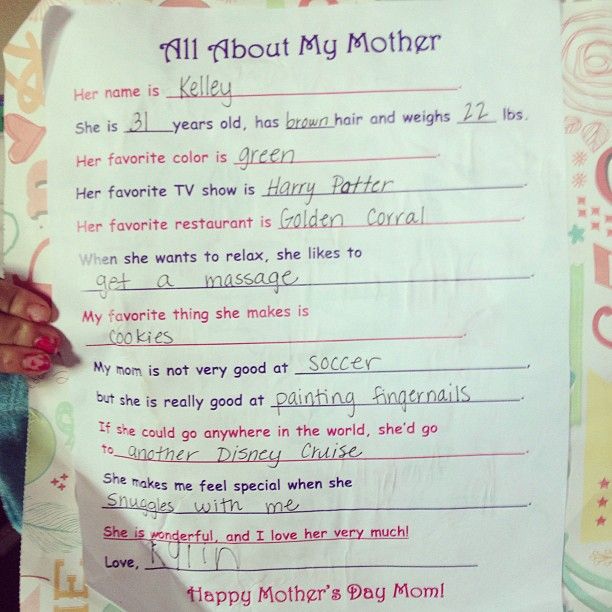 All About My Mother
Her name is Kelley.
She is 31 years old, has brown hair and weighs 22 lbs.
Her favorite color is green.
Her favorite TV show is Harry Potter.
Her favorite restaurant is Golden Corral.
When she wants to relax, she likes to
get a massage.
My favorite thing she makes is
cookies.
My mom is not very good at soccer,
but she is really good at painting fingernails.
If she could go anywhere in the world, she'd go
to another Disney Cruise.
She makes me feel special when she
snuggles with me.
She is wonderful, and I love her very much!
Love, Kylin
Happy Mother's Day Mom!